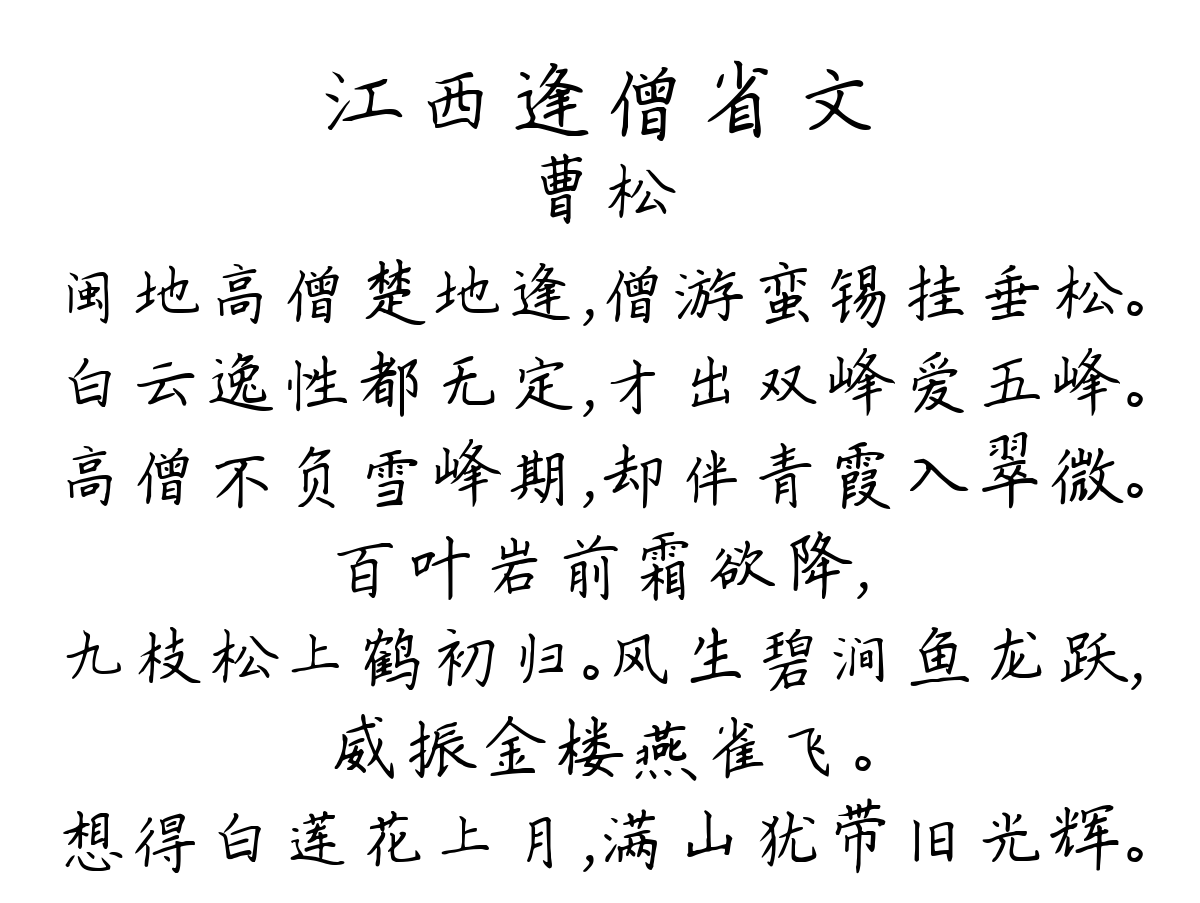 江西逢僧省文
曹松
闽地高僧楚地逢,僧游蛮锡挂垂松。
白云逸性都无定,才出双峰爱五峰。
高僧不负雪峰期,却伴青霞入翠微。
百叶岩前霜欲降,
九枝松上鹤初归。风生碧涧鱼龙跃,
威振金楼燕雀飞。
想得白莲花上月,满山犹带旧光辉。